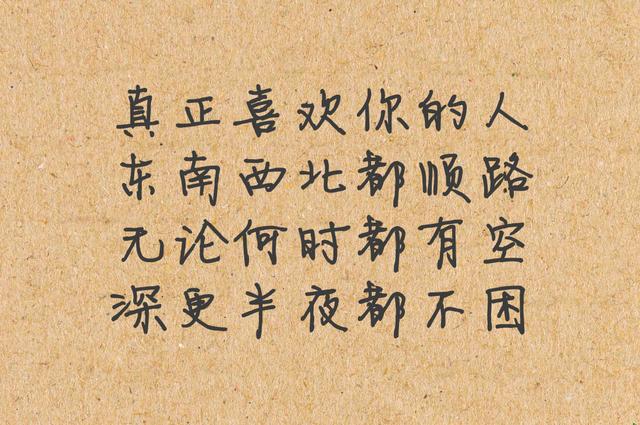 真正喜欢你的人
东南西北都顺路
无论何时都有空
深更半夜都不困